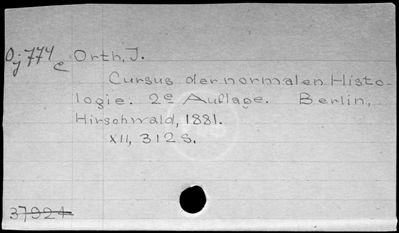 Oj 774 e Orth, J.
Cursus der normalen Histo-
logie. 2e Auflage. Berlin,
Hirschwald, 1881.
XII, 312 S.
37924